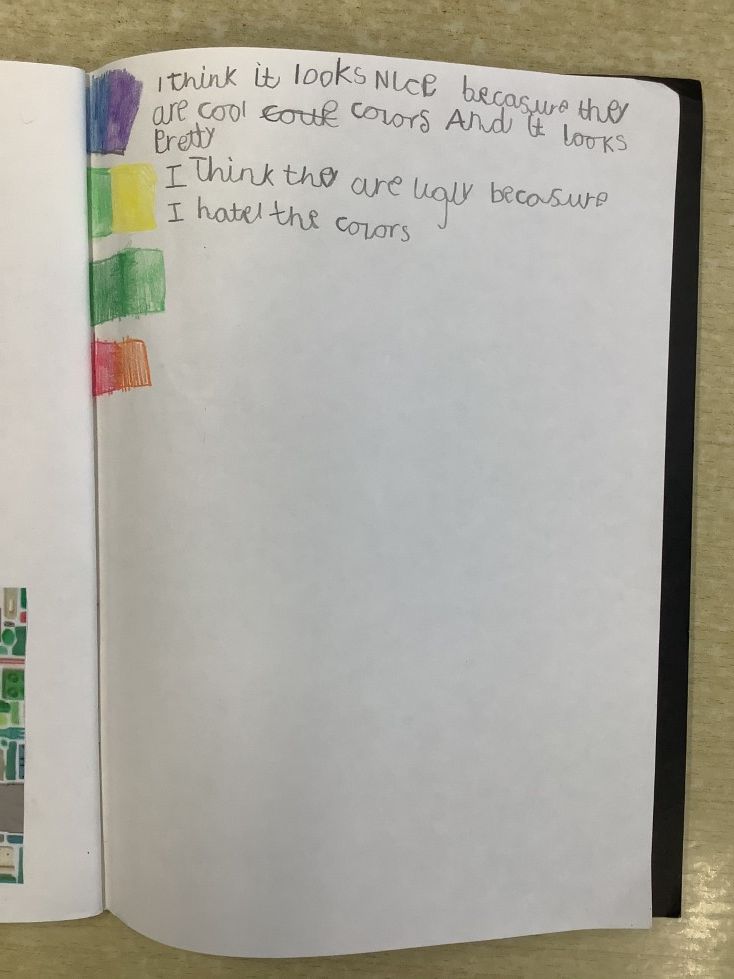 I think it looks NIcE becasure they
are cool coule colors And it looks
Pretty
I Think they are ugly becasure
I hatel the colors